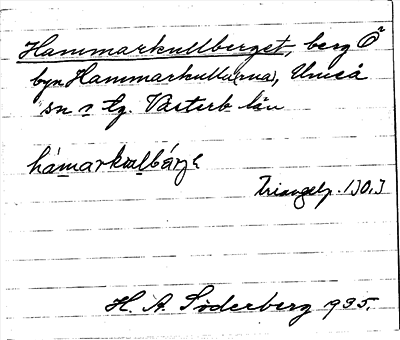 Hammarkullberget, berg Ö
byn Hammarkulla(rna), Umeå
sn o tg. Västerb län
håmarkulbärjɛ
Triangelp. 130,3
H. A. Söderberg 1935.